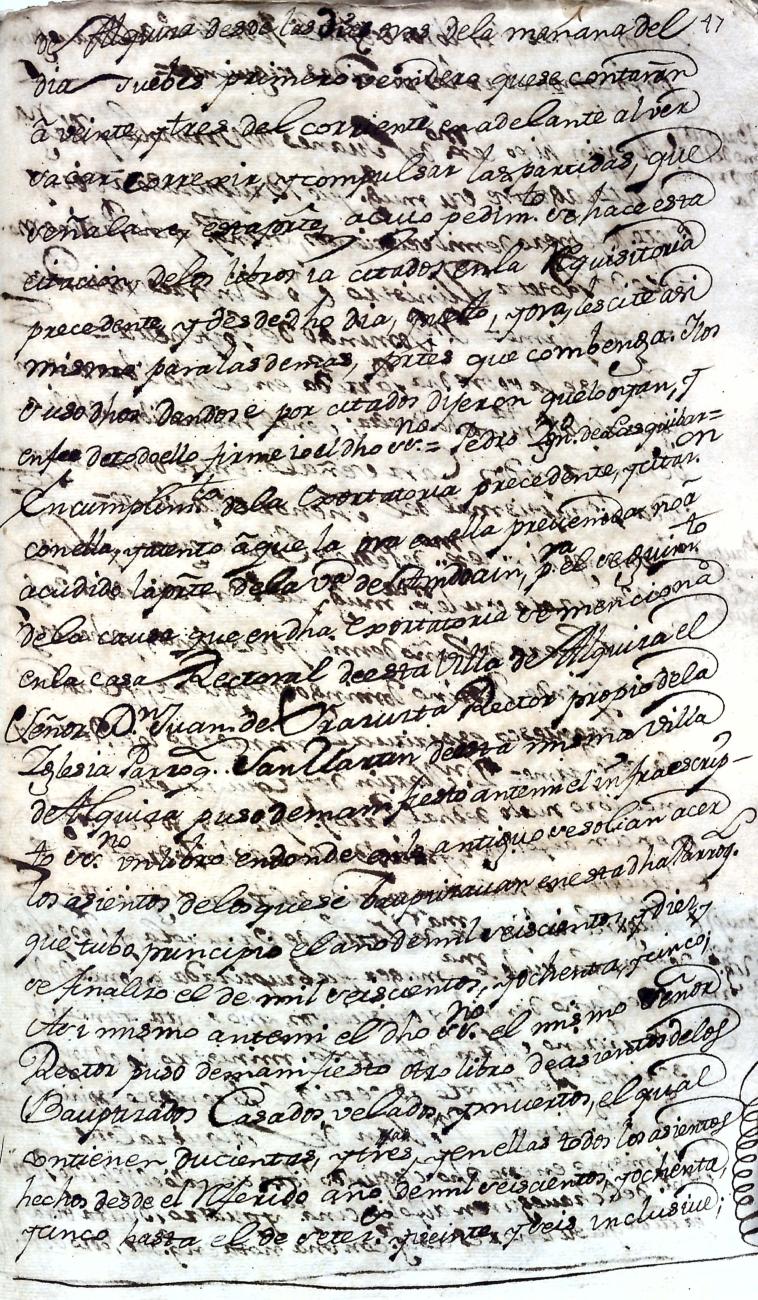 de Alquiza desde las diez oras dela mañana del 47
dia Juebes primero venidero que se contaran
â veinte, y tres del corriente en adelante al ver
sacar correxir, y compulsar las partidas, que
señalare, esta parte, a cuio pedim.to se hace esta
citacion delos libros ia citados en la Requisitoria
precedente, y desde dho dia, puesto, y ora, les cite asi
mismo para las demas, partes que combenga. Y los
suso dhos dandose por citados dijeron que lo oyan, y
en fee de todo ello firme io el dho ss.no = Pedro Ign.o de Lasquibar =
En cumplim.to de la Exortatoria precedente, y citaz.on
con ella, y atento â que la ora en ella prevenida no â
acudido la parte de la v.a de Amdoain, p.a el seguim.to
de la causa que en dha Exortatoria se menciona
en la casa Rectoral de esta Villa de Alquiza el
Señor D.n Juan de Rector propio de la
Iglesia Parroq. San Martin de esta misma villa
de Alquiza puso de manifiesto ante mi el infraescrip-
to ss.no un libro en donde en lo antiguo se solian acer
los asientos, delos que se Bauptizauan en esta dha Parroq.
que tubo principio el año de mil seiscientos, y diez, y
se finalizo el de mil seiscientos, y ochenta, y cinco;
Asi mismo ante mi el dho ss.no el mismo Señor
Rector puso de manifiesto otro libro de asientos de los
Bauptizados Casados, velados, y muertos, el qual
contienen ducientas, y tres, y en ellas todos los asientos
hechos desde el referido año de mil seiscientos, y ochenta,
y cinco, hasta el de setez.os y veinte, y seis inclusive;